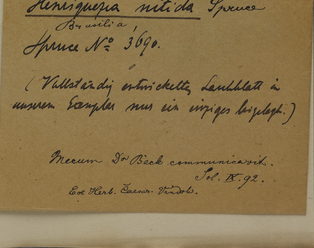 Henriquezia nitida Spruce
Brasilia,
Spruce Nº 3690.
(Vollständig entwickeltes Laubblatt in
unserem Exemplar nur ein einziges beigelegt.)
Mecum Dr Beck communicavit.
Sol. IX. 92.
Ex Herb. Caesar. Vindob.